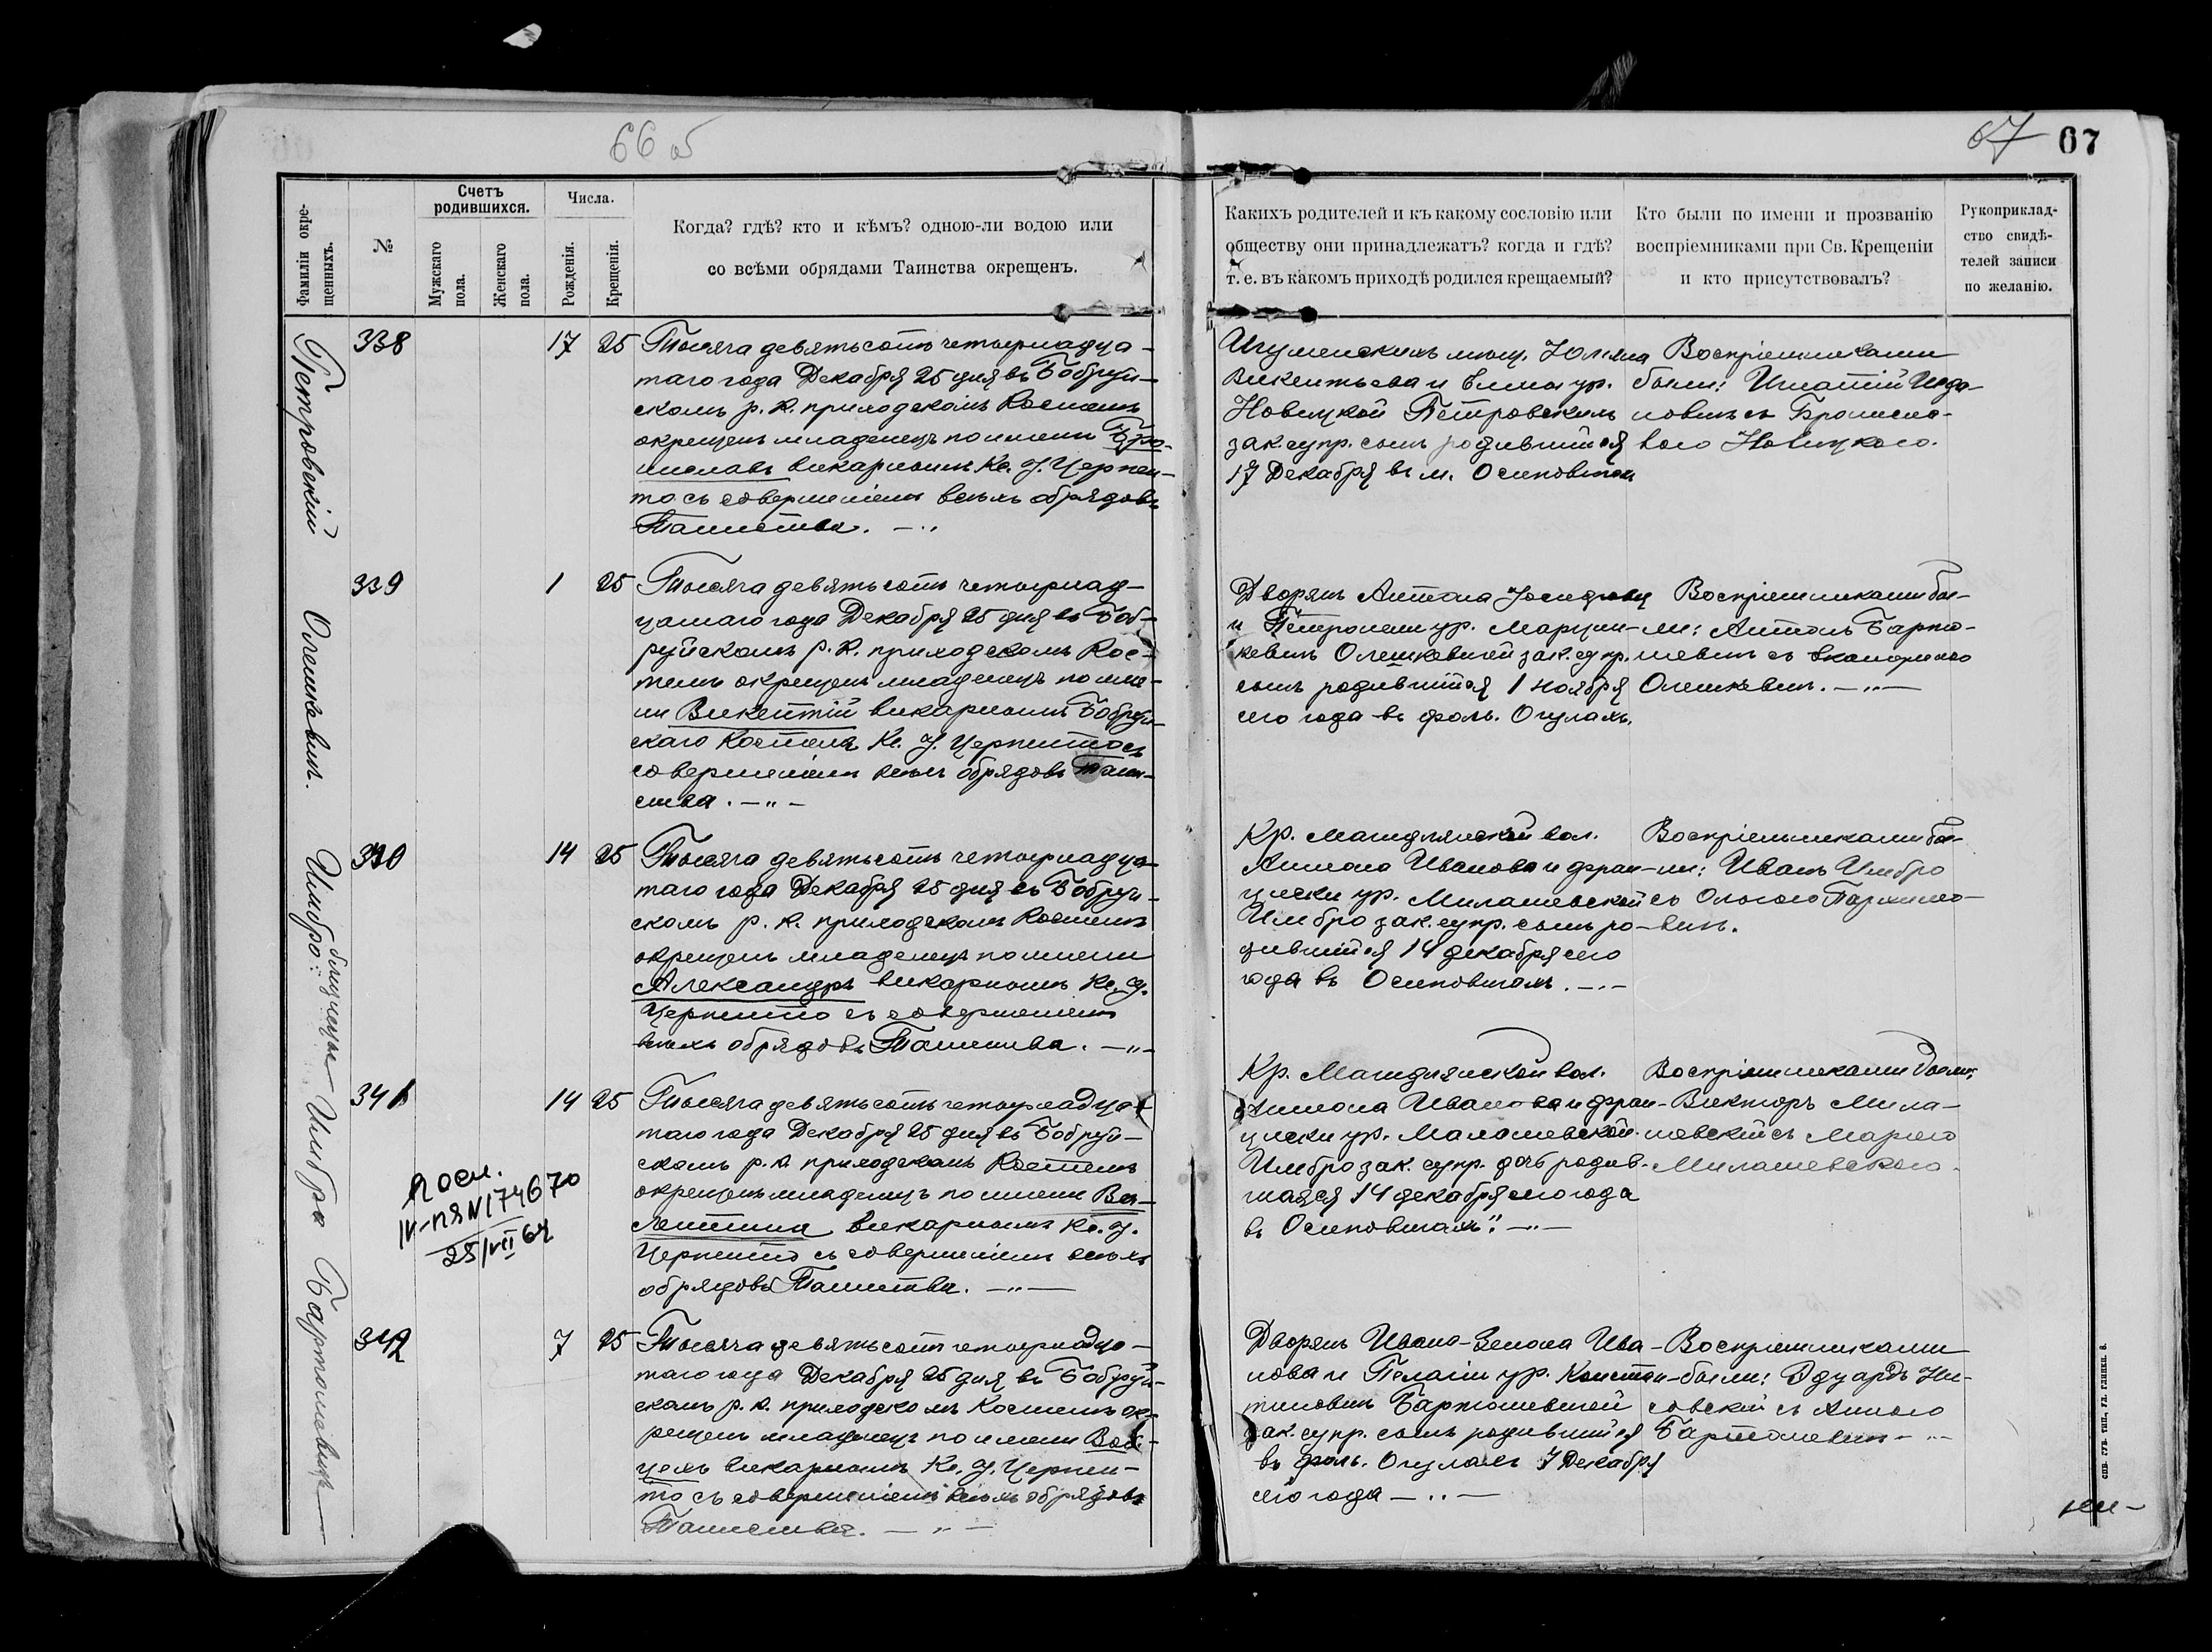 66 об
67 67
Фамиліи окре-
щенныхъ.
№
Счетъ
родившихся.
Мужскаго
пола.
Женскаго
пола.
Числа.
Рожденія.
Крещенія.
Когда? гдѣ? кто и кѣмъ? одною-ли водою или
со всѣми обрядами Таинства окрещенъ.
Какихъ родителей и къ какому сословію или
обществу они принадлежатъ? когда и гдѣ?
т. е. въ какомъ приходѣ родился крещаемый?
Кто были по имени и прозванію
воспріемниками при Св. Крещеніи
и кто присутствовалъ?
Рукоприклад-
ство свидѣ-
телей записи
по желанію.
Петровскій
338 17 25
Тысяча девятьсотъ четырнадца-
таго года Декабря 25 дня въ Бобруй-
скомъ р. К. приходскомъ Костелѣ
окрещенъ младенецъ по имени Бро-
ниславъ викарнымъ Кс. Я. Черпен-
то съ совершеніемъ всѣхъ обрядовъ
Таинства. —"
Игуменскихъ мѣщ. Юліана
Викентьева и Елены ур.
Новицкой Петровскихъ
зак. супр. сынъ родившійся
17 Декабря въ м. Осиповичи
Воспріемниками
были: Игнатій
новичъ съ Бронисла-
вою Новицкою.
Олешкевичъ.
339 1 25
Тысяча девятьсотъ четырнад-
цатаго года Декабря 25 дня въ Боб-
руйскомъ р. К. приходскомъ Кос-
телѣ окрещенъ младенецъ по име-
ни Викентій викарнымъ Бобруй-
скаго Костела Кс. Я. Черпенто съ
совершеніемъ всѣхъ обрядовъ Таин-
ства. —"—
Дворянъ Антона Іосифова
и Петронели ур. Марцин-
кевичъ Олешкевичей зак. супр.
сынъ родившійся 1 ноября
сего года въ фоль. Оцулахъ.
Воспріемниками бы-
ли: Антонъ Барто-
шевичъ съ
Олешкевичъ. —"—
Имбро близнецы
340 14 25
Тысяча девятьсотъ четырнадца-
таго года Декабря 25 дня въ Бобруй-
скомъ р. К. приходскомъ Костелѣ
окрещенъ младенецъ по имени
Александръ викарнымъ Кс. Я.
Черпенто съ совершеніемъ
всѣхъ обрядовъ Таинства. —"—
Кр. вол.
Антона Иванова и Фран-
циски ур. Милашевской
Имбро зак. супр. сынъ ро-
дившійся 14 декабря сего
года въ Осиповичахъ. —"—
Воспріемниками бы-
ли: Иванъ Имбро
съ Ольгою
вичъ.
Имбро
341 14 25
Тысяча девятьсотъ четырнадца-
таго года Декабря 25 дня въ Бобруй-
скомъ р. К. приходскомъ Костелѣ
окрещенъ младенецъ по имени Ва-
лентина викарнымъ Кс. Я.
Черпенто съ совершеніемъ всѣхъ
обрядовъ Таинства. —"—
Кр. вол.
Антона Иванова и Фран-
циски ур. Малашевской
Имбро зак. супр. дочь родив-
шаяся 14 декабря сего года
въ Осиповичахъ. —"—
Воспріемниками были:
Викторъ Мила-
шевскій съ Маріею
Милашевскою.
IV-ПЯ N174670
25/VII 64
Бартошевичъ
342 7 25
Тысяча девятьсотъ четырнадца-
таго года Декабря 25 дня въ Бобруй-
скомъ р. К. приходскомъ Костелѣ ок-
рещенъ младенецъ по имени Вой-
цехъ викарнымъ Кс. Я. Черпен-
то съ совершеніемъ всѣхъ обрядовъ
Таинства. —"—
Дворянъ Ивана-Зенона Ива-
нова и Пелагіи ур. Констан-
тиновичъ Бартошевичей
зак. супр. сынъ родившійся
въ фоль. Оцулахъ 7 Декабря
сего года —"—
Воспріемниками
были: Эдуардъ
совскій съ Анною
Бартошевичъ —"
спб. губ. тип., ул. глинки. 8.